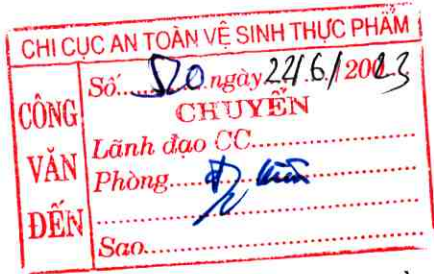 CHI CỤC AN TOÀN VỆ SINH THỰC PHẨM
CÔNG VĂN ĐẾN
Số.....520.ngày 22/6./2023
CHUYỂN
Lãnh đạo CC....................
Phòng....................
....................
Sao....................